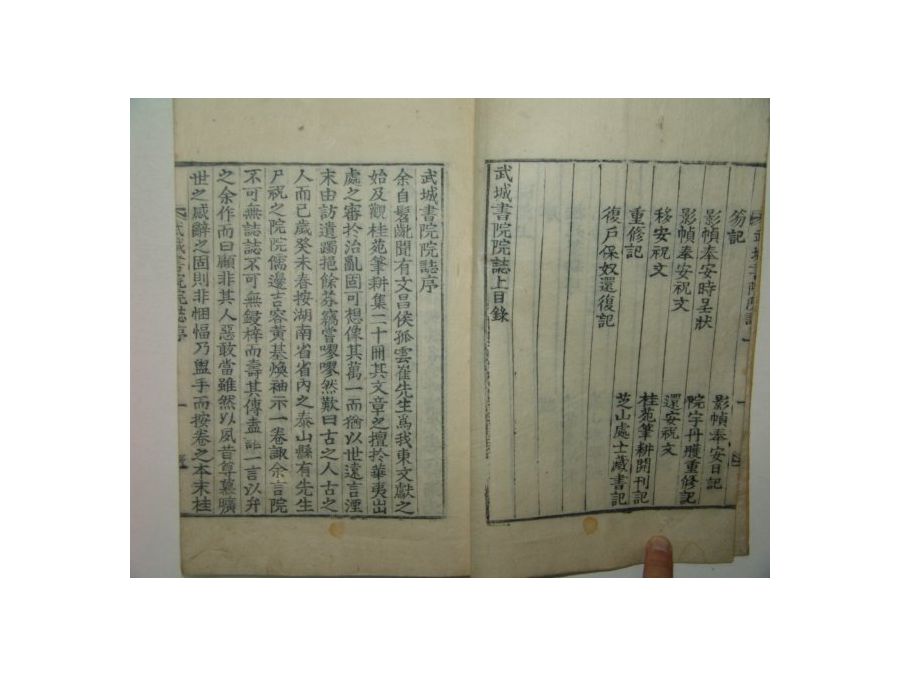 笏記
影幀奉安時呈狀　影幀奉安日記
影幀奉安祝文　院宇丹雘重修記
移安祝文　還安祝文
重修記　桂苑筆耕開刊記
復戶保奴還復記　芝山處士藏書記
武城書院院誌上目錄
武城書院院誌序
余自髫齔聞有文昌侯孤雲崔先生爲我東文獻之
始及觀桂苑筆耕集二十冊其文章之擅於華夷出
處之審於治亂固可想像其萬一而猶以世遠言湮
末由訪遺躅挹餘芬竊嘗嘐嘐然歎曰古之人古之
人而已歲癸未春按湖南省省內之泰山縣有先生
尸祝之院院儒邊吉容黃基煥袖示一卷諏余言院
不可無誌誌不可無鋟梓而壽其傳盍一言以弁
之余作而曰顧非其人惡敢當雖然以夙昔尊慕曠
世之感辭之固則非悃愊乃盥手而按卷之本末桂
武城書院院誌序 一